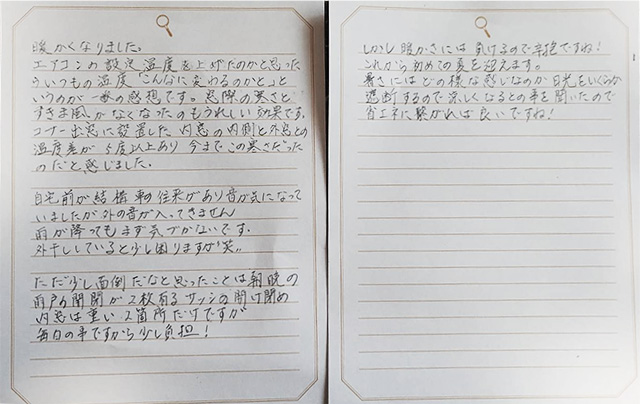 暖かくなりました。
エアコンの設定温度を上げたのかと思った
ういつもの温度「こんなに変わるのかと」と
いうのが一番の感想です。窓際の寒さと、
すきま風がなくなったのもうれしい効果です。
コーナー出窓に設置した内窓の内側と外気との
温度差が5度以上あり今までこの寒さだった
のだと感じました。
自宅前が結構車の往来があり音が気になって
いましたが外の音が入ってきません
雨が降ってもまず気づかないです。
外干ししていると少し困りますが笑。
ただ少し面倒だなと思ったことは朝晩の
雨戸の開閉が2枚有るサッシの開け閉め
内窓は重い2箇所だけですが
毎日の事ですから少し負担!
しかし暖かさには負けるので辛抱ですね!
これから初めての夏を迎えます。
暑さにはどの様な感じなのか日光をいくらか
遮断するので涼しくなるとの事を聞いたので
省エネに繋がれば良いですね!